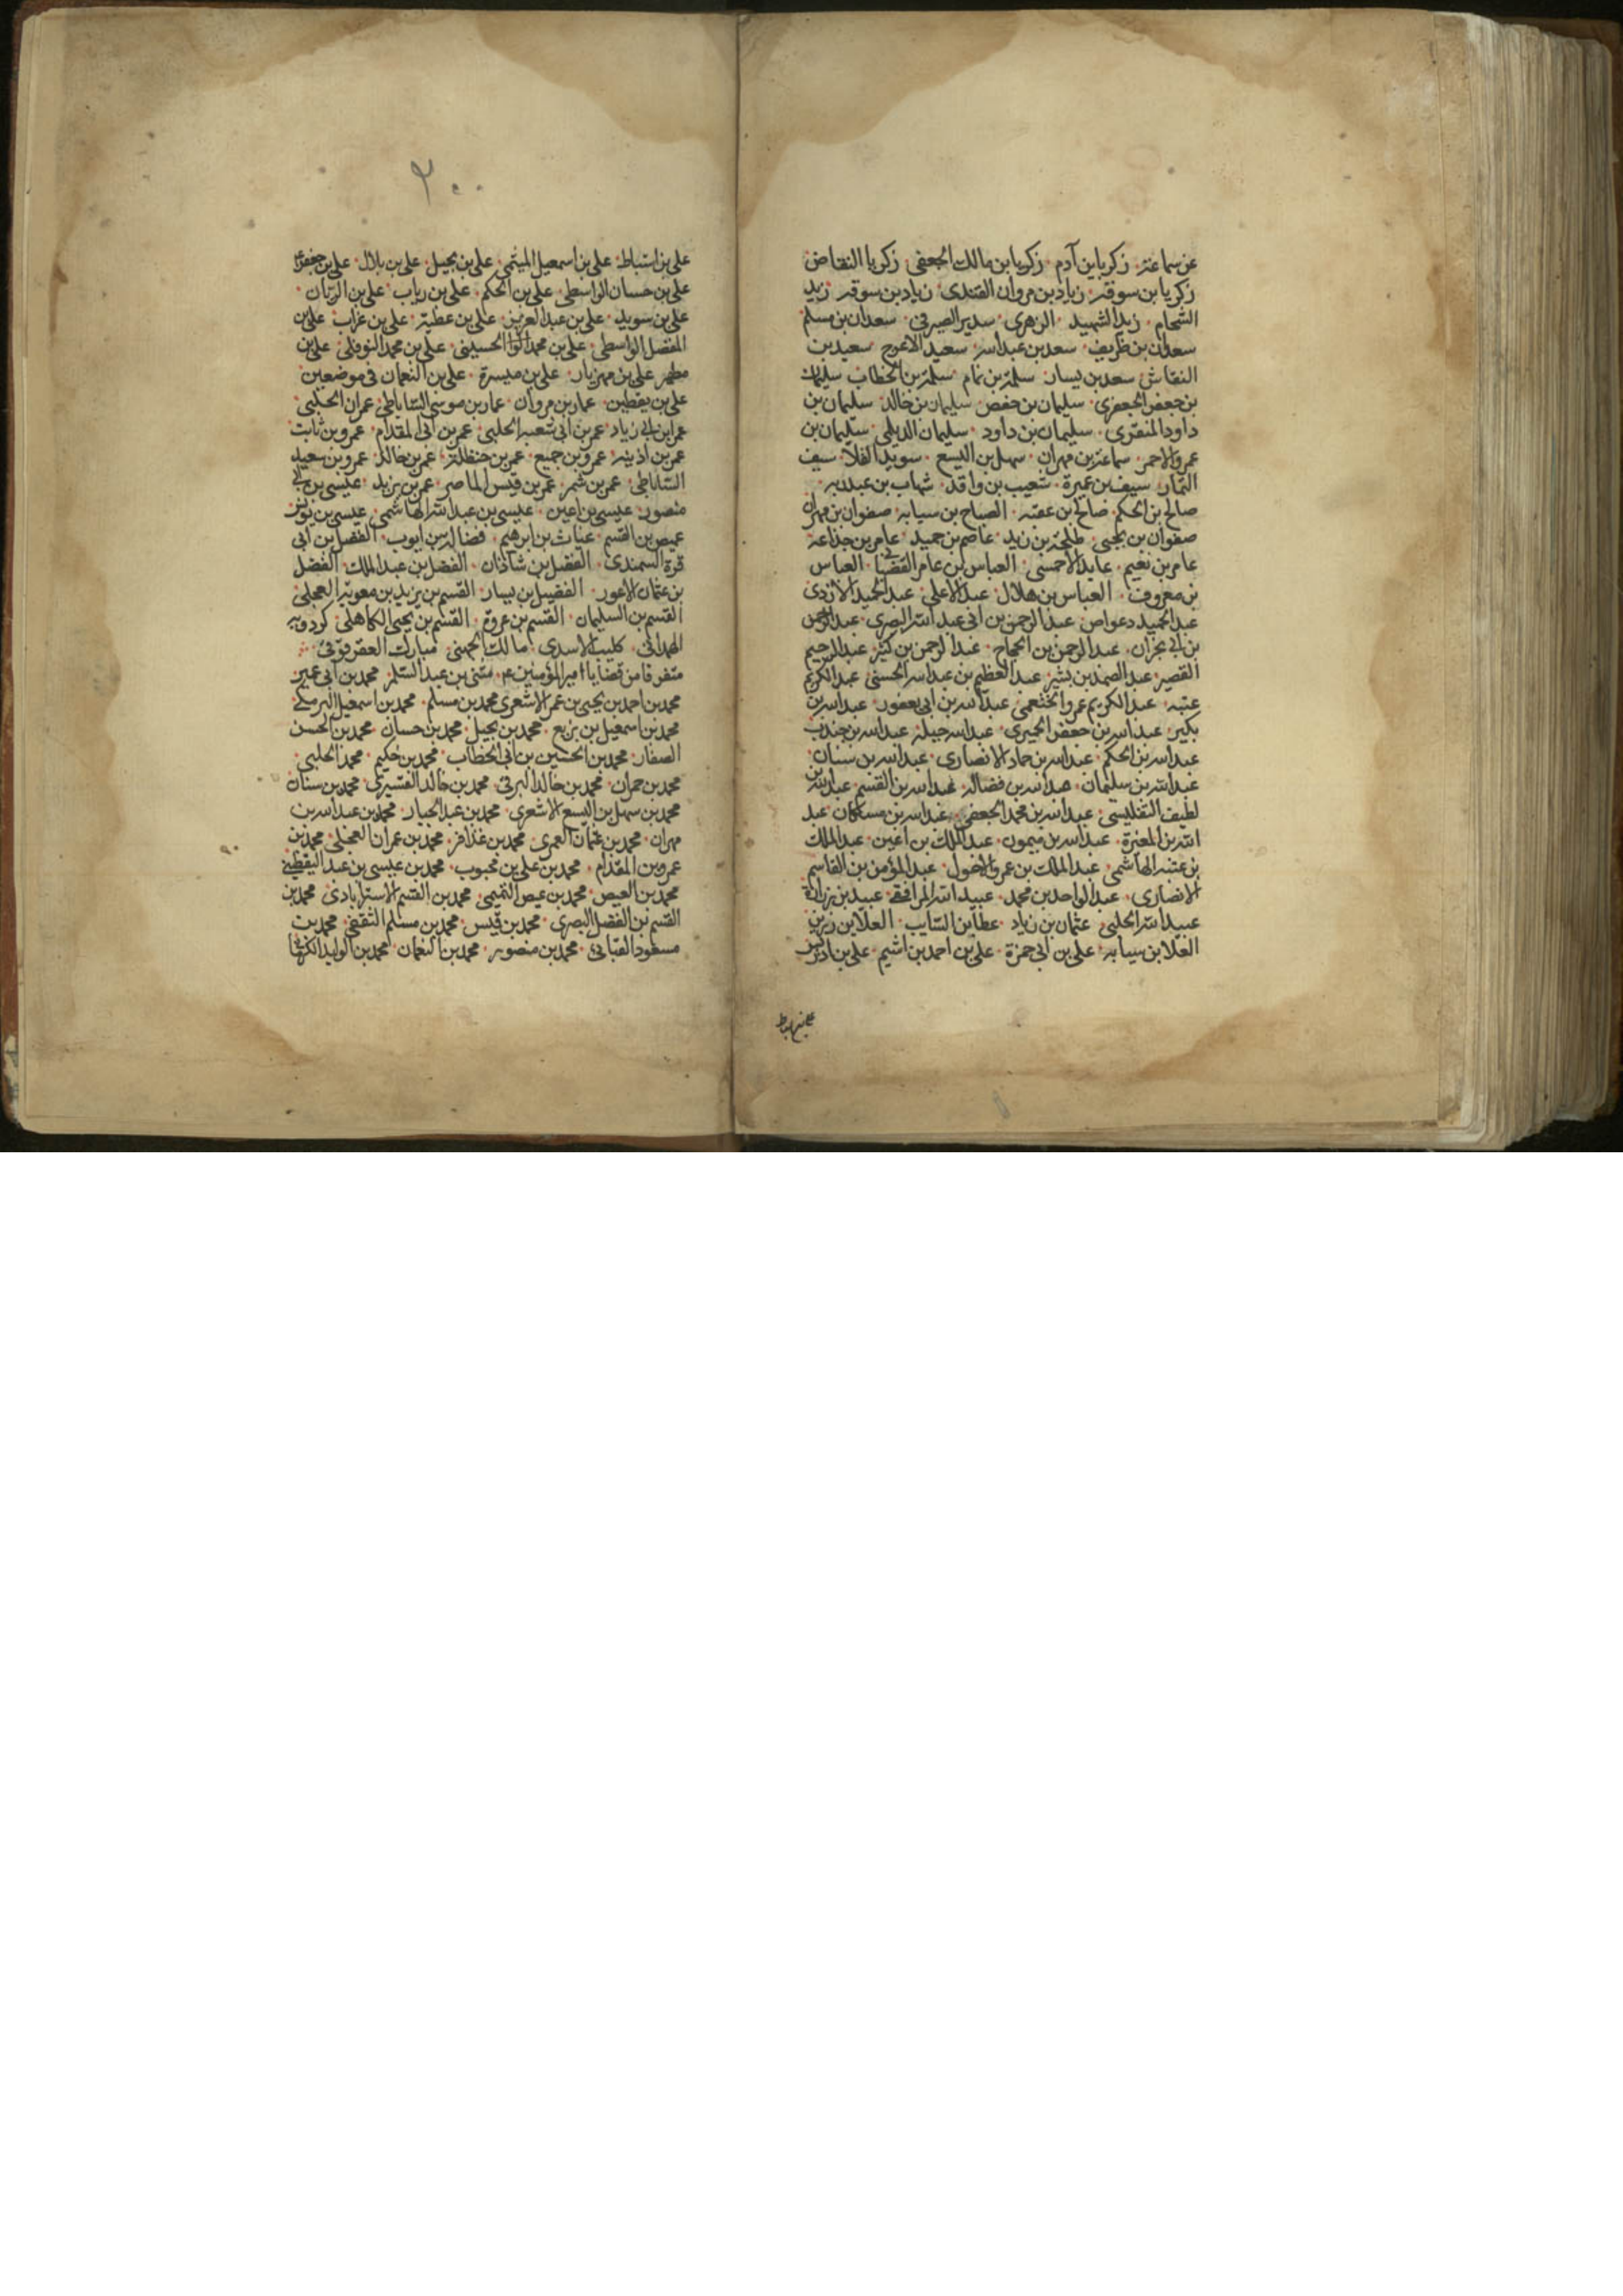 عن سماعة زكريا بن آدم زكريا بن مالك الجعفي زكريا النقاض
زكريا بن سوقه زياد بن مروان القندى زياد بن سوقه زيد
الشحام زيد الشهيد الزهرى سدير الصيرفي سعدان بن مسلم
سعدان بن ظريف سعد بن عبد الله سعيد الاعرج سعيد بن
النقاش سعد بن يسار سلمة بن تمام سلمة بن الخطاب سليمان
بن جعفر الجعفرى سليمان بن حفص سليمان بن خالد سليمان بن
داود المنقرى سليمان بن داود سليمان الديلمى سليمان بن
عمرو الاحمر سماعة بن مهران سهل بن اليسع سويد القلا سيف
التمار سيف بن عميرة شعيب بن واقد شهاب بن عبد ربه
صالح بن الحكم صالح بن عقبه الصباح بن سيابه صفوان بن مهران
صفوان بن يحيى طلحة بن زيد عاصم بن حميد عامر بن جذاعة
عامر بن نعيم عايد الاحمسى العباس بن عامر القضبانى العباس
بن معروف العباس بن هلال عبد الاعلى عبد الحميد الازدى
عبد الحميد دعواض عبد الرحمن بن ابى عبد الله البصرى عبد الرحمن
بن ابى نجران عبد الرحمن بن الحجاج عبد الرحمن بن كثير عبد الرحيم
القصير عبد الصمد بن بشير عبد العظيم بن عبد الله الحسنى عبد الكريم
عتبه عبد الكريم عمرو الخثعمى عبد الله بن ابى يعفور عبد الله بن
بكير عبد الله بن جعفر الحميرى عبد الله جبلة عبد الله بن جندب
عبد الله بن الحكم عبد الله بن حماد الانصارى عبد الله بن سنان
عبد الله بن سليمان عبد الله بن فضاله عبد الله بن القسم عبد الله بن
لطيف التفليسى عبد الله بن محمد الجعفى عبد الله بن مسكان عبد
الله بن المغيرة عبد الله بن ميمون عبد الملك بن اعين عبد الملك
بن عتبه الهاشمى عبد الملك بن عمرو الاحول عبد المؤمن بن القاسم
الانصارى عبد الواحد بن محمد عبيد الله المرافقى عبيد بن زرارة
عبيد الله الحلبى عثمان بن زياد عطا بن السايب العلا بن رزين
العلا بن سيابه على بن ابى حمزة على بن احمد بن اشيم على بن ادريس
على بن اسباط
٢٠٠
على بن اسباط على بن اسمعيل الميثمى على بن بجيل على بن بلال على بن جعفر
على بن حسان الواسطى على بن الحكم على بن رياب على بن الريان
على بن سويد على بن عبد العزيز على بن عطية على بن غراب على بن
الفضل الواسطى على بن محمد الحسينى على بن محمد النوفلى على بن
مطهر على بن مهزيار على بن ميسرة على بن النعمان فى موضعين
على بن يقطين عمار بن مروان عمار بن موسى الساباطى عمران الحلبى
عمر بن ابى زياد عمر بن ابى شعبه الحلبى عمر بن ابى المقدام عمرو بن ثابت
عمر بن اذينه عمرو بن جميع عمر بن حنظلة عمر بن خالد عمرو بن سعيد
الساباطى عمر بن شمر عمر بن قيس الماصر عمر بن يزيد عيسى بن ابى
منصور عيسى بن اعين عيسى بن عبد الله الهاشمى عيسى بن يونس
عيص بن القسم غياث بن ابرهيم فضالة بن ايوب الفضل بن ابى
قرة السمندى الفضل بن شاذان الفضل بن عبد الملك الفضل
بن عثمان الاعور الفضيل بن يسار القسم بن يزيد بن معوية العجلى
القسم بن السليمان القسم بن عروة القسم بن يحيى الكاهلى كردويه
الهمدانى كليب الاسدى مالك الجهنى مبارك العقرقوفى
متفرقا من قضايا امير المؤمنين ع مثنى بن عبد السلم محمد بن ابى عمير
محمد بن احمد بن يحيى بن عمر الاشعرى محمد بن مسلم محمد بن اسمعيل البرمكى
محمد بن اسمعيل بن بزيع محمد بن بجيل محمد بن حسان محمد بن الحسن
الصفار محمد بن الحسين بن ابى الخطاب محمد بن حكيم محمد الحلبى
محمد بن حمران محمد بن خالد البرقى محمد بن خالد القسيرى محمد بن سنان
محمد بن سهل بن اليسع الاشعرى محمد بن عبد الجبار محمد بن عبد الله بن
مهران محمد بن عثمان العمرى محمد بن عذافر محمد بن عمران العجلى محمد بن
عمرو بن المقدام محمد بن على بن محبوب محمد بن عيسى بن عبد اليقطينى
محمد بن العيص محمد بن عيص التميمى محمد بن القسم الاسترابادى محمد بن
القسم بن الفضل البصرى محمد بن قيس محمد بن مسلم الثقفى محمد بن
مسعود العياشى محمد بن منصور محمد بن النعمان محمد بن الوليد الكرمانى